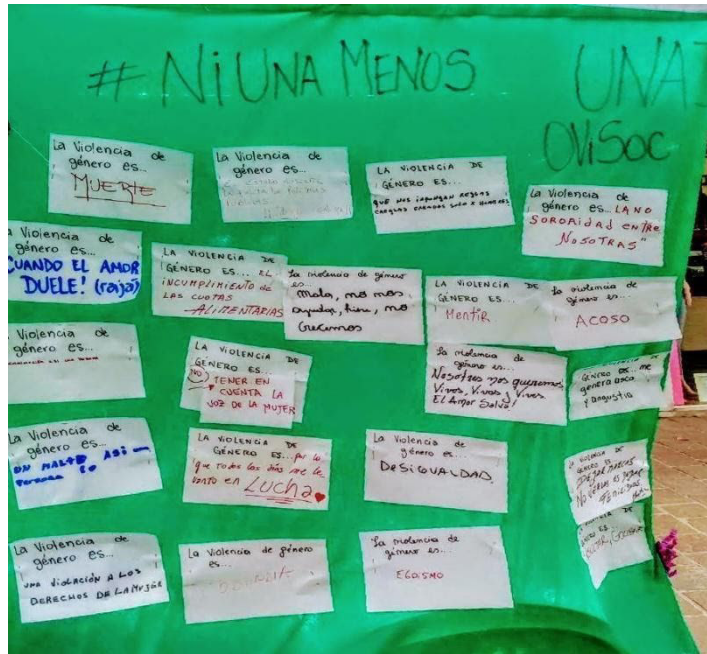 # NiUNA MENOS
UNA
OViSoc
La Violencia de
género es...
MUERTE
La Violencia de
género es...
LA VIOLENCIA DE
GÉNERO ES...
QUE NOS IMPONGAN REGLAS
CREADAS SOLO X HOMBRES
La Violencia de
género es... LA NO
SORORIDAD ENTRE
NOSOTRAS"
La Violencia de
género es...
CUANDO EL AMOR
DUELE!
LA VIOLENCIA DE
GÉNERO ES... EL
INCUMPLIMIENTO DE
LAS CUOTAS
ALIMENTARIAS
La violencia de género
es...
Mala, no nos
ayuda, hiere, no
Crecemos
LA VIOLENCIA DE
GÉNERO ES...
MENTIR
La violencia de
género es...
ACOSO
La Violencia de
género es...
LA VIOLENCIA DE
GÉNERO ES...
NO TENER EN
CUENTA LA
VOZ DE LA MUJER
La violencia de
género es...
Nosotras nos queremos
Vivas, Vivas y Vivas
El Amor Salva!
GÉNERO ES... me
genera asco
y angustia
La Violencia de
género es...
UN MALTRATO
persona
LA VIOLENCIA DE
GÉNERO ES... por lo
que todos los días me le
vanto en LUCHA
La Violencia de
género es...
DESIGUALDAD.
LA VIOLENCIA DE
GÉNERO ES
DEJAR MARCAS
NO VERLAS ES DEJAR
La Violencia de
género es...
UNA VIOLACIÓN A LOS
DERECHOS DE LA MUJER
La Violencia de género
es...
La violencia de
género es...
EGOISMO
GÉNERO ES...